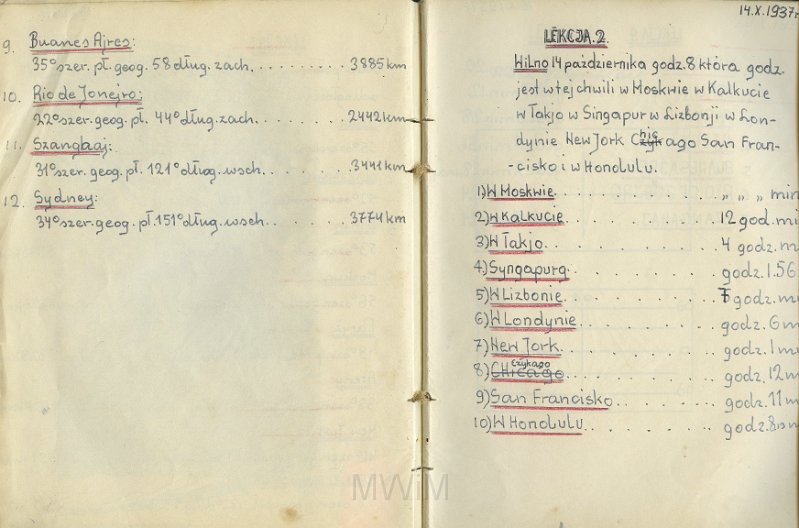 9. Buanes Ajres:
35° szer. pł. geog. 58 dług. zach. . . . . . . . . 3885 km
10. Rio de Jonejro:
22° szer. geog. pł. 44° dług. zach. . . . . . . . 2442 km
11. Szanghaj:
31° szer. geog. pł. 121° dług. wsch. . . . . . . . 3441 km
12. Sydney:
34° szer. geog. pł. 151° dług. wsch. . . . . . . 3774 km
14.X.1937r
LEKCJA 2.
Wilno 14 października godz. 8 która godz.
jest w tej chwili w Moskwie w Kalkucie
w Takjo w Singapur w Lizbonji w Lon-
dynie New Jork Chicago San Fran-
-cisko i w Honolulu.
1) W Moskwie. . . . . . . . . „ „ „ min
2) W Kalkucie . . . . . . . . 12 god. mi
3) W Takjo . . . . . . . . . 4 godz. m
4) Syngapurg. . . . . . . . . godz. 1.56
5) W Lizbonie. . . . . . . . . 7 godz. mi
6) W Londynie . . . . . . . . godz. 6 m
7) New Jork. . . . . . . . . godz. 1 mi
czykago
8) CHicago . . . . . . . . . godz. 12 m
9) San Francisko . . . . . . . godz. 11 m
10) W Honolulu. . . . . . . . godz. 8
MWiM